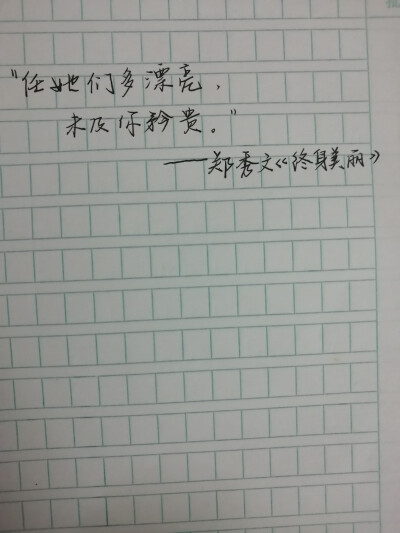 “任她们多漂亮，
未及你矜贵。”
——郑秀文《终身美丽》